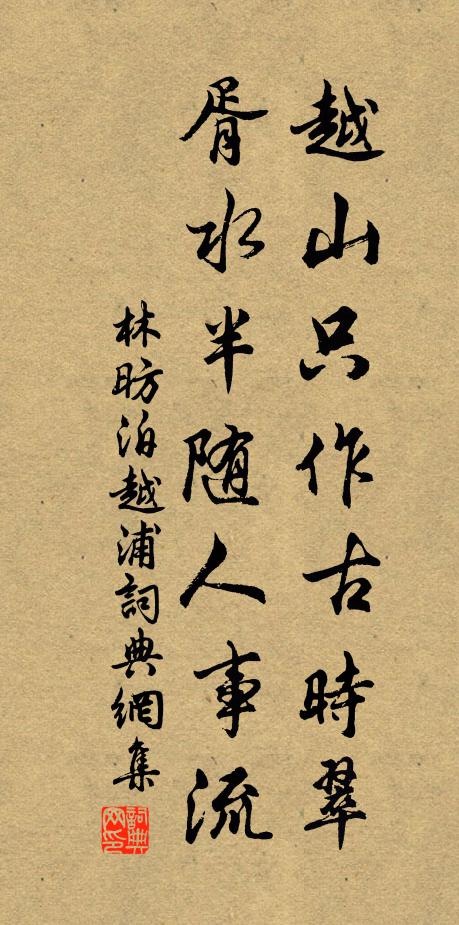 越山只作古時翠
胥水半随人事流
林昉泊越浦詞典網集
詞典網印